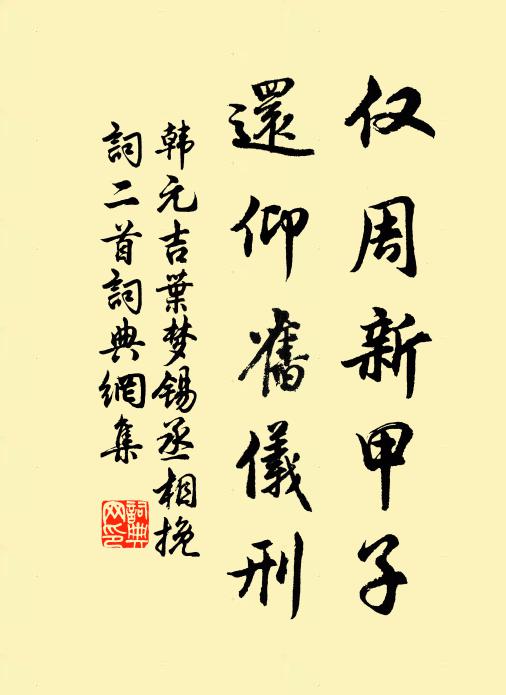 仅周新甲子
還仰舊儀刑
韩元吉葉梦锡丞相挽
詞二首詞典網集
詞典网印